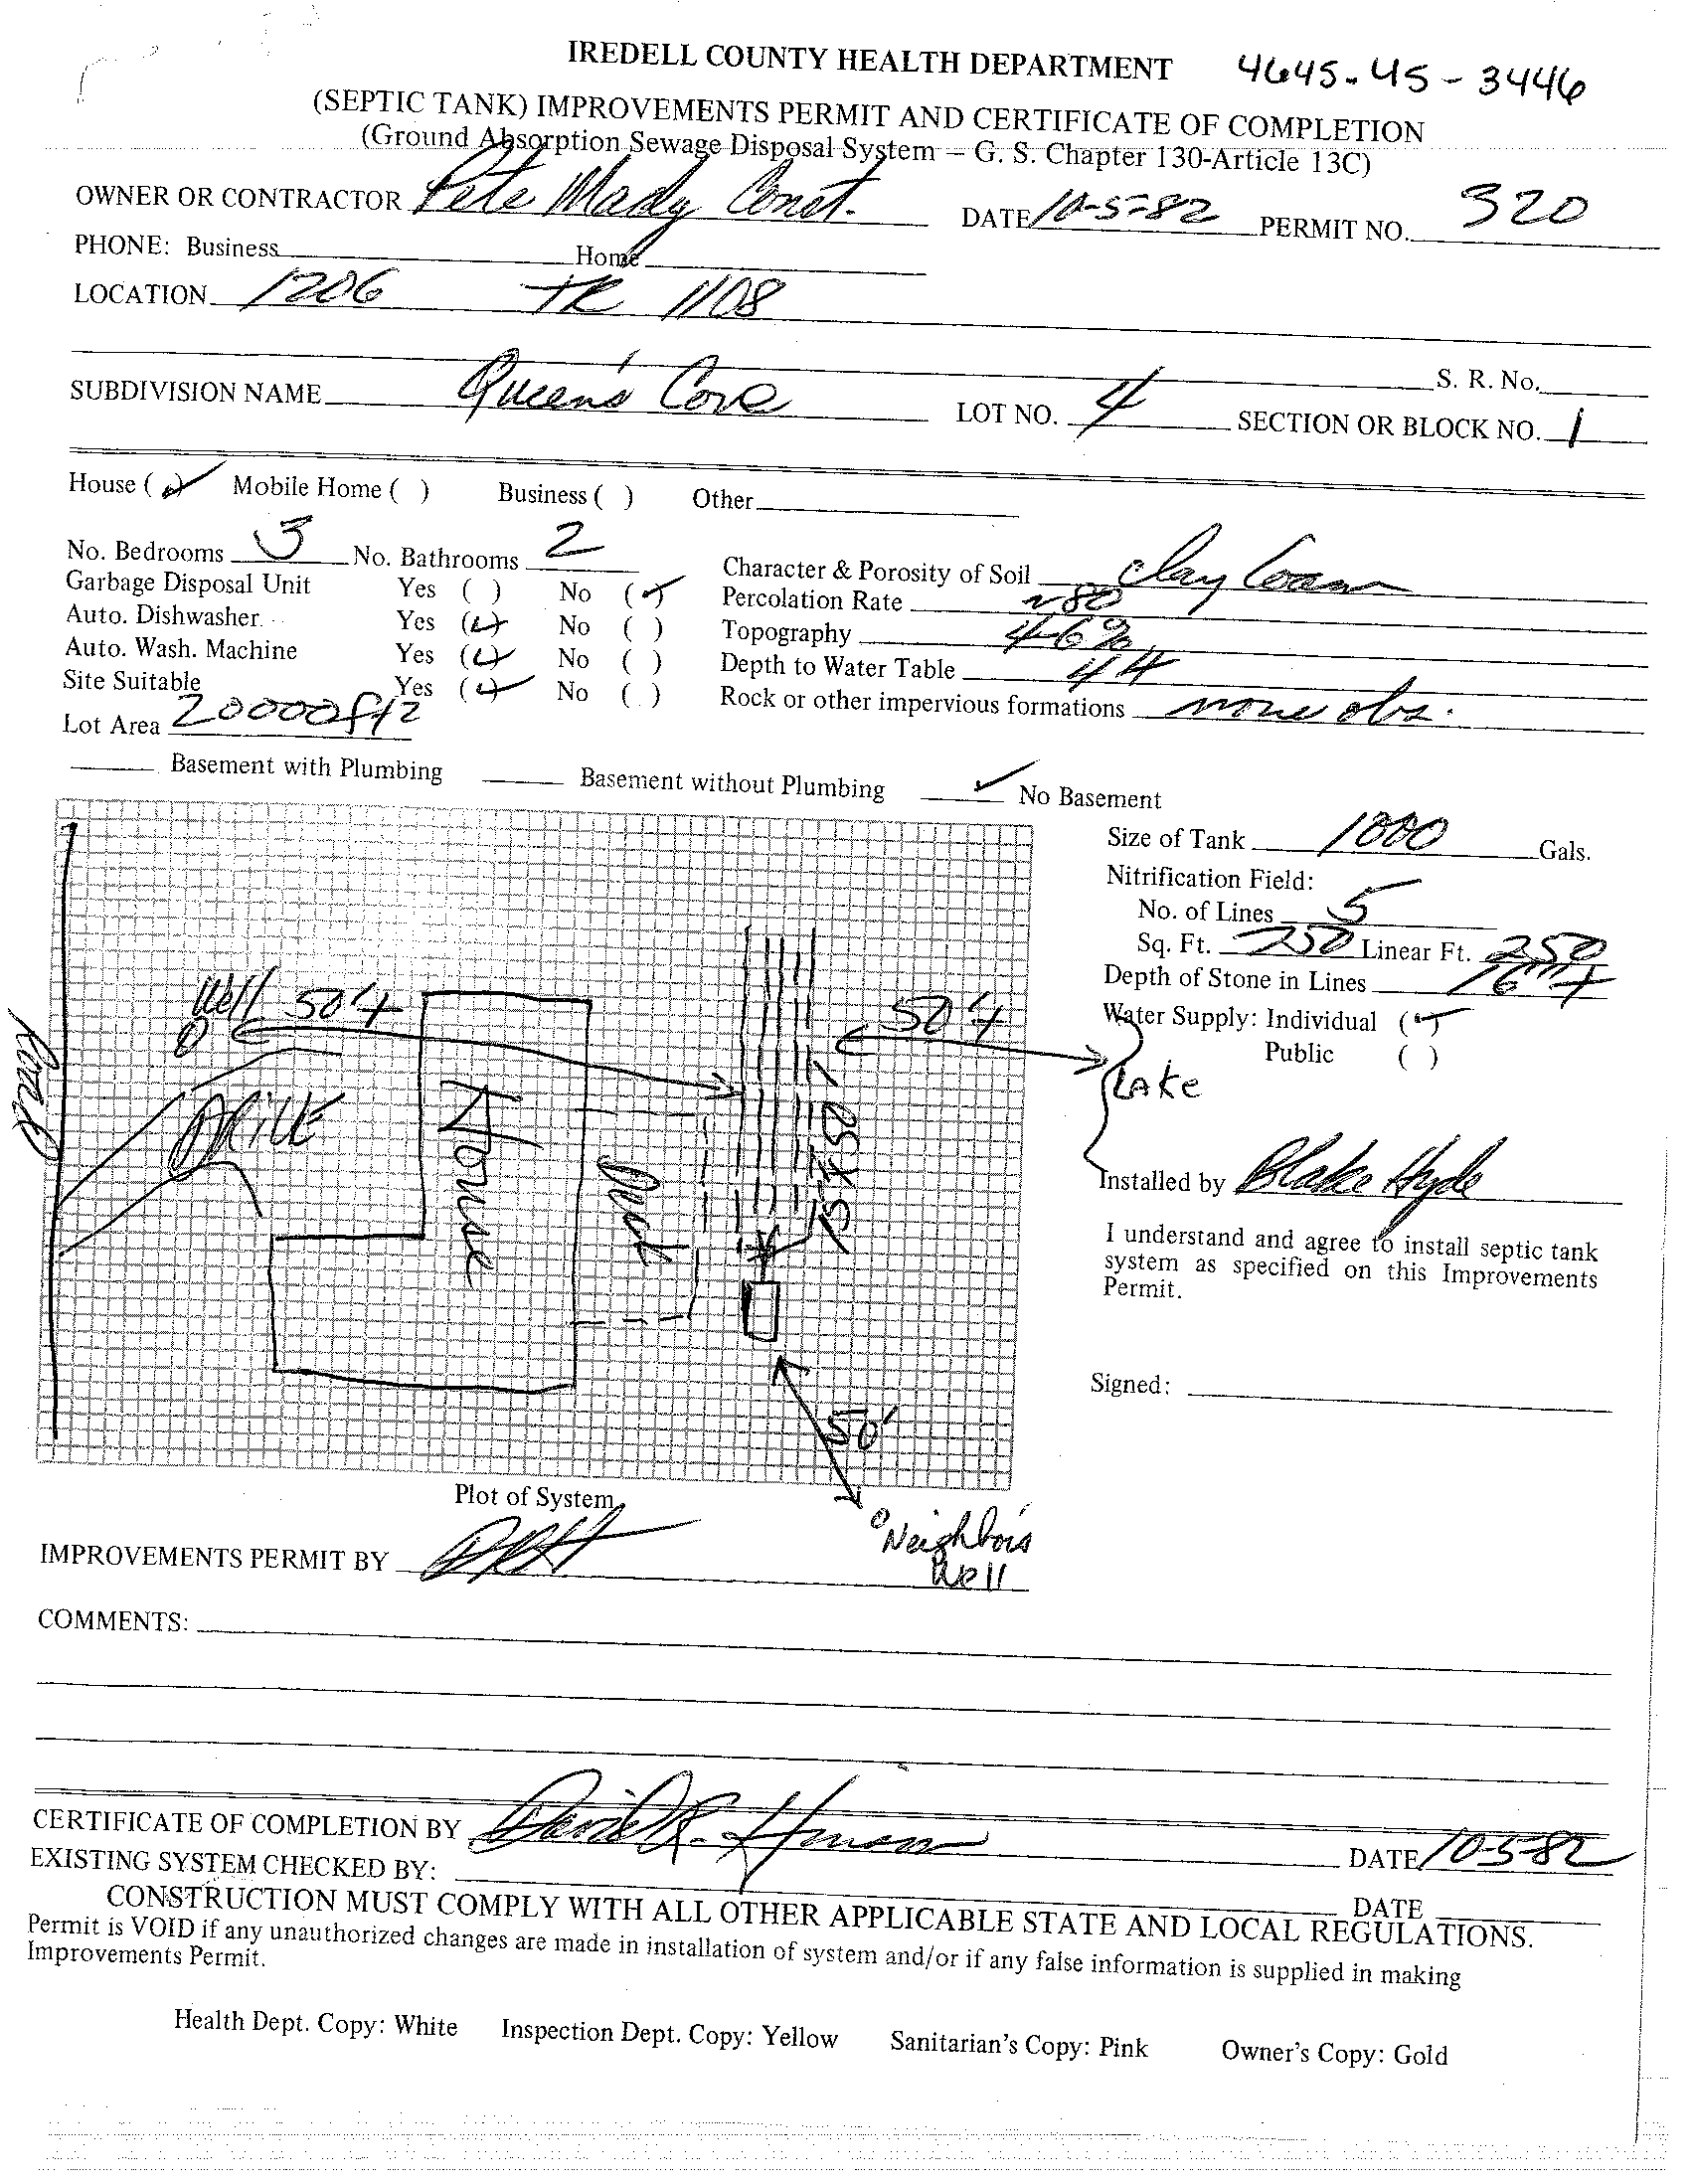 IREDELL COUNTY HEALTH DEPARTMENT 4645-45-3446
(SEPTIC TANK) IMPROVEMENTS PERMIT AND CERTIFICATE OF COMPLETION
(Ground Absorption Sewage Disposal System – G. S. Chapter 130-Article 13C)
OWNER OR CONTRACTOR Pete Mady Const. DATE 10-5-82 PERMIT NO. 320
PHONE: Business Home
LOCATION 1206 TR 1108
SUBDIVISION NAME Queen's Cove LOT NO. 4 S. R. No. SECTION OR BLOCK NO. 1
House (✓) Mobile Home ( ) Business ( ) Other
No. Bedrooms 3 No. Bathrooms 2 Character & Porosity of Soil Clay Loam
Garbage Disposal Unit Yes ( ) No (✓) Percolation Rate ~80
Auto. Dishwasher Yes (✓) No ( ) Topography 4-6%
Auto. Wash. Machine Yes (✓) No ( ) Depth to Water Table
Site Suitable Yes (✓) No ( ) Rock or other impervious formations none obs.
Lot Area 20000ft2
Basement with Plumbing Basement without Plumbing ✓ No Basement
Size of Tank 1000 Gals.
Nitrification Field:
No. of Lines 5
Sq. Ft. 750 Linear Ft. 250
Depth of Stone in Lines
Water Supply: Individual (✓)
Public ( )
Well 50'+
50'+
Lake
Road
Drive
House
50'
Neighbors
Well
Installed by Blake Hyde
I understand and agree to install septic tank
system as specified on this Improvements
Permit.
Signed:
Plot of System
IMPROVEMENTS PERMIT BY DRH
COMMENTS:
CERTIFICATE OF COMPLETION BY David R. DATE 10-5-82
EXISTING SYSTEM CHECKED BY: DATE
CONSTRUCTION MUST COMPLY WITH ALL OTHER APPLICABLE STATE AND LOCAL REGULATIONS.
Permit is VOID if any unauthorized changes are made in installation of system and/or if any false information is supplied in making
Improvements Permit.
Health Dept. Copy: White Inspection Dept. Copy: Yellow Sanitarian's Copy: Pink Owner's Copy: Gold